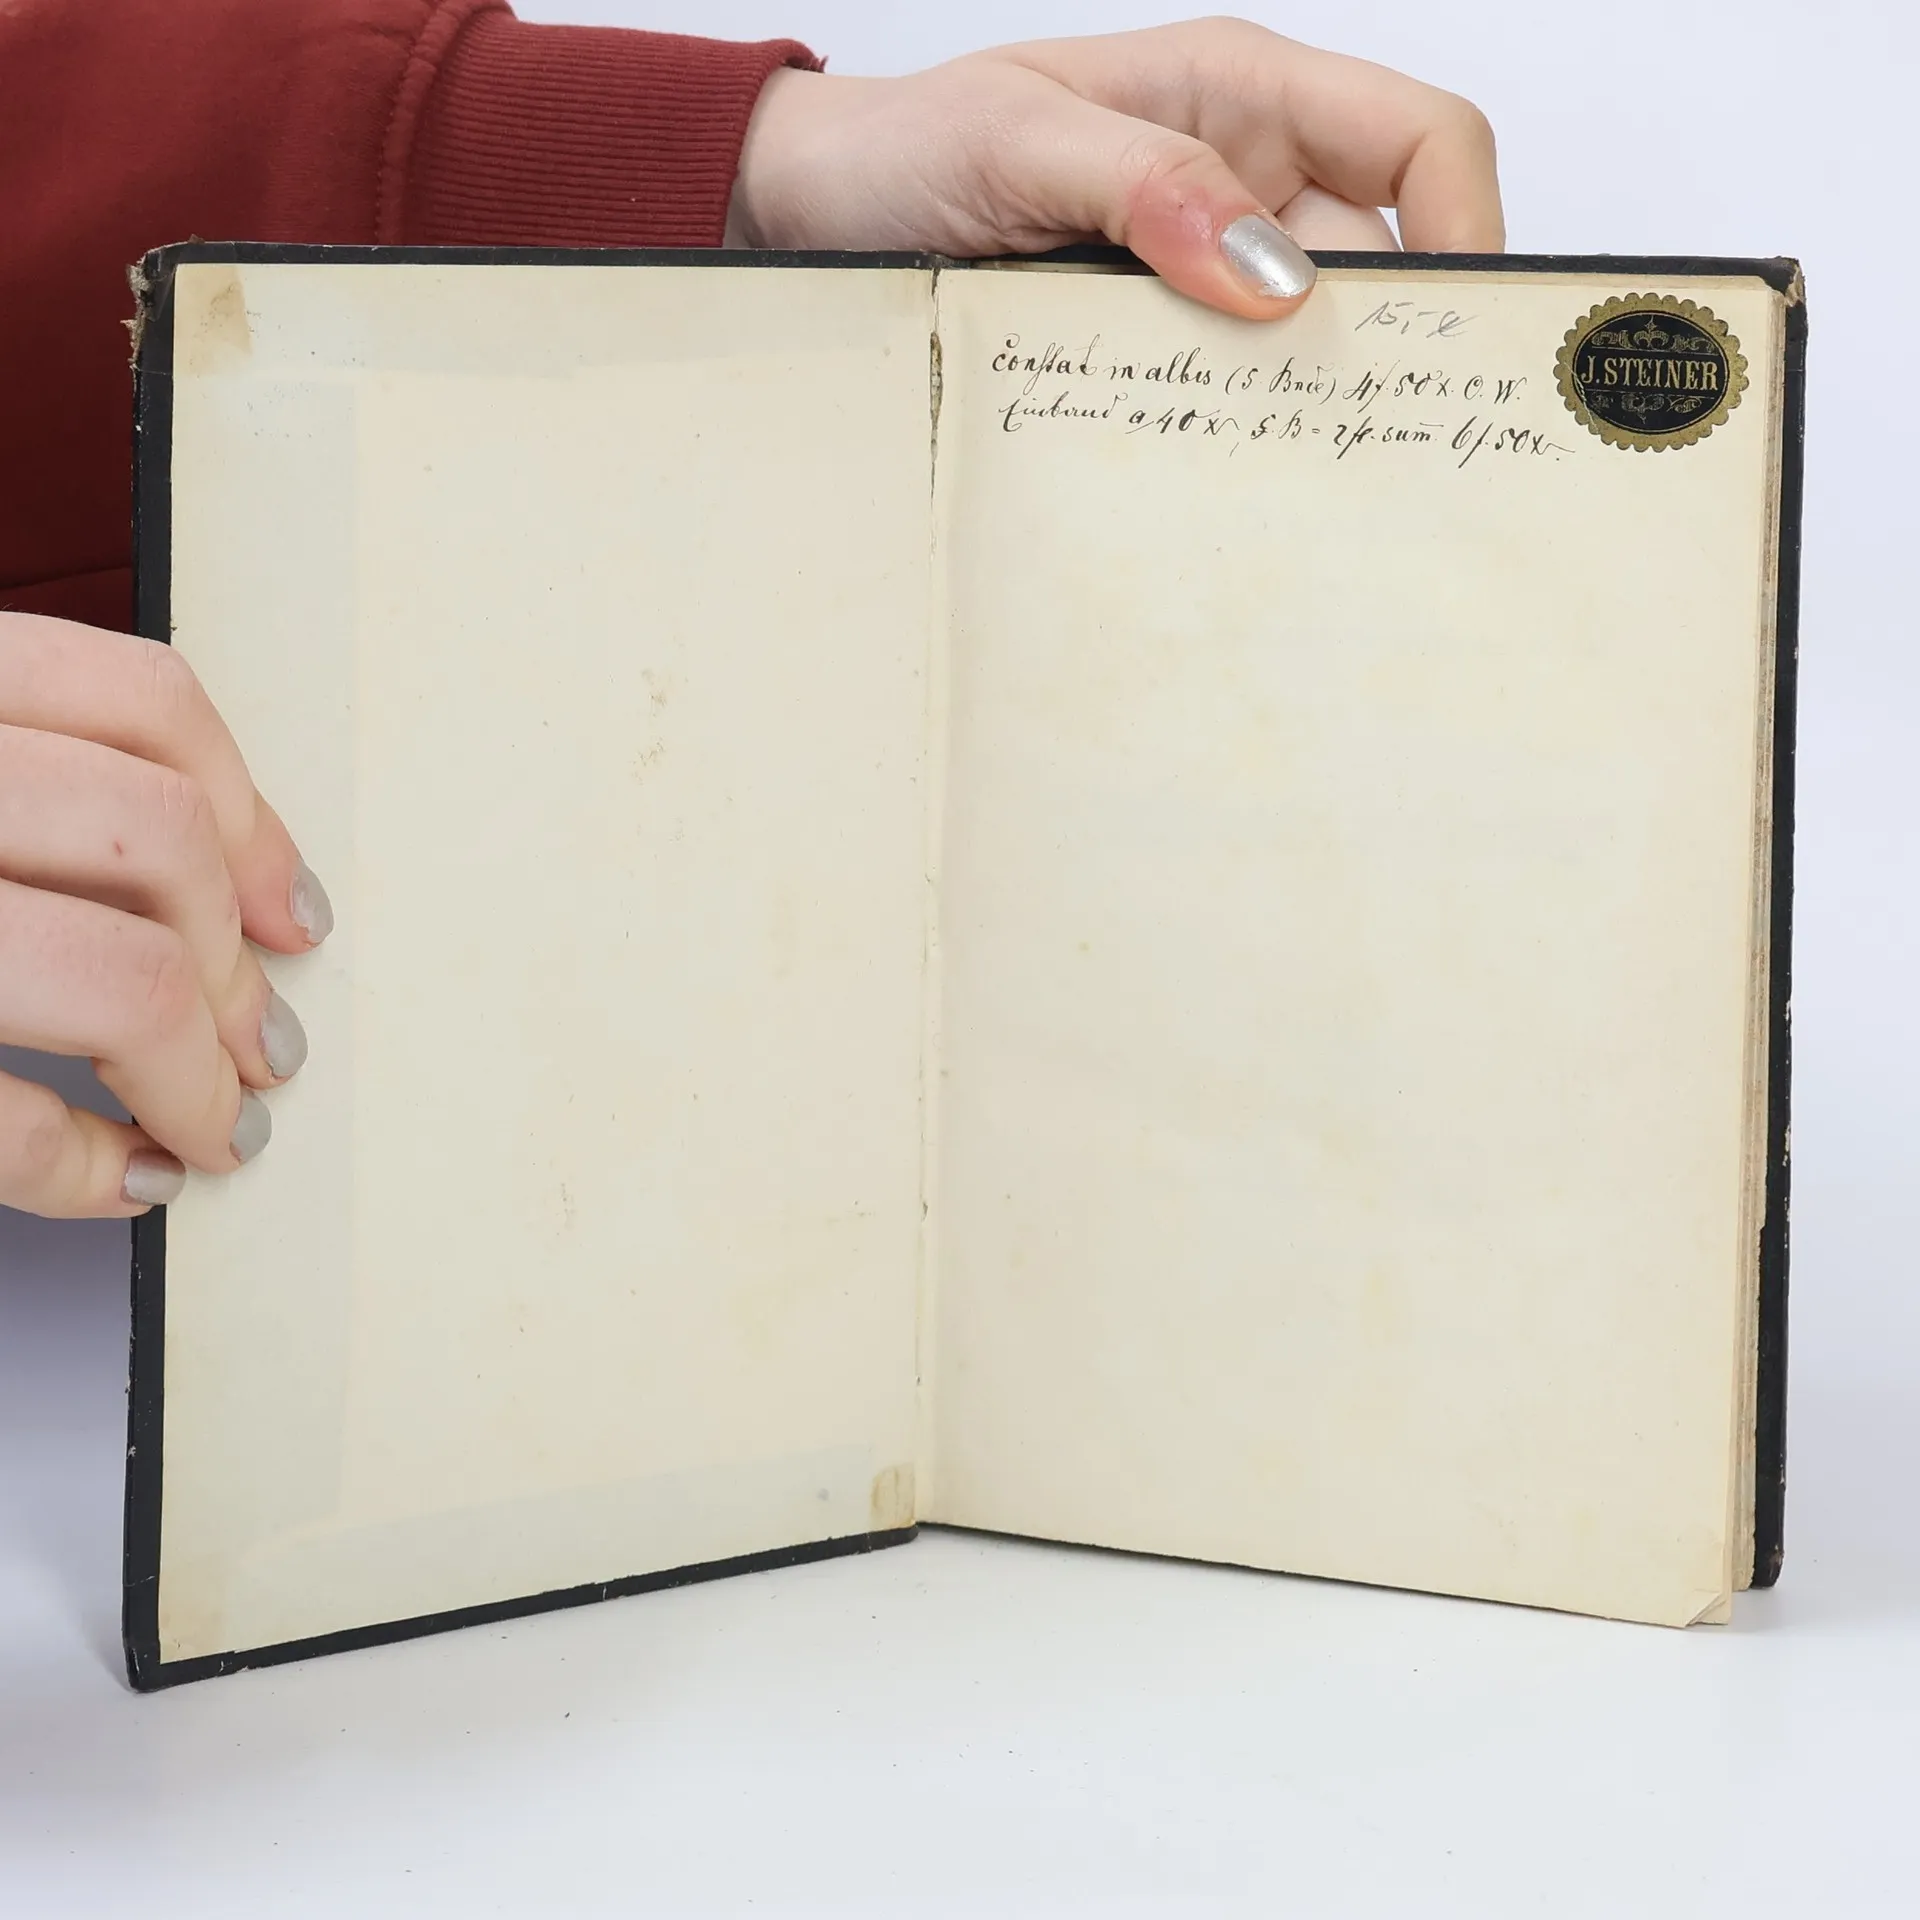 15,-
J. STEINER
Constat in albis (5 Bnde) 4f. 50x. O. W.
Einband a 40x, 5 B = 2fl. sum̄. 6f. 50x.